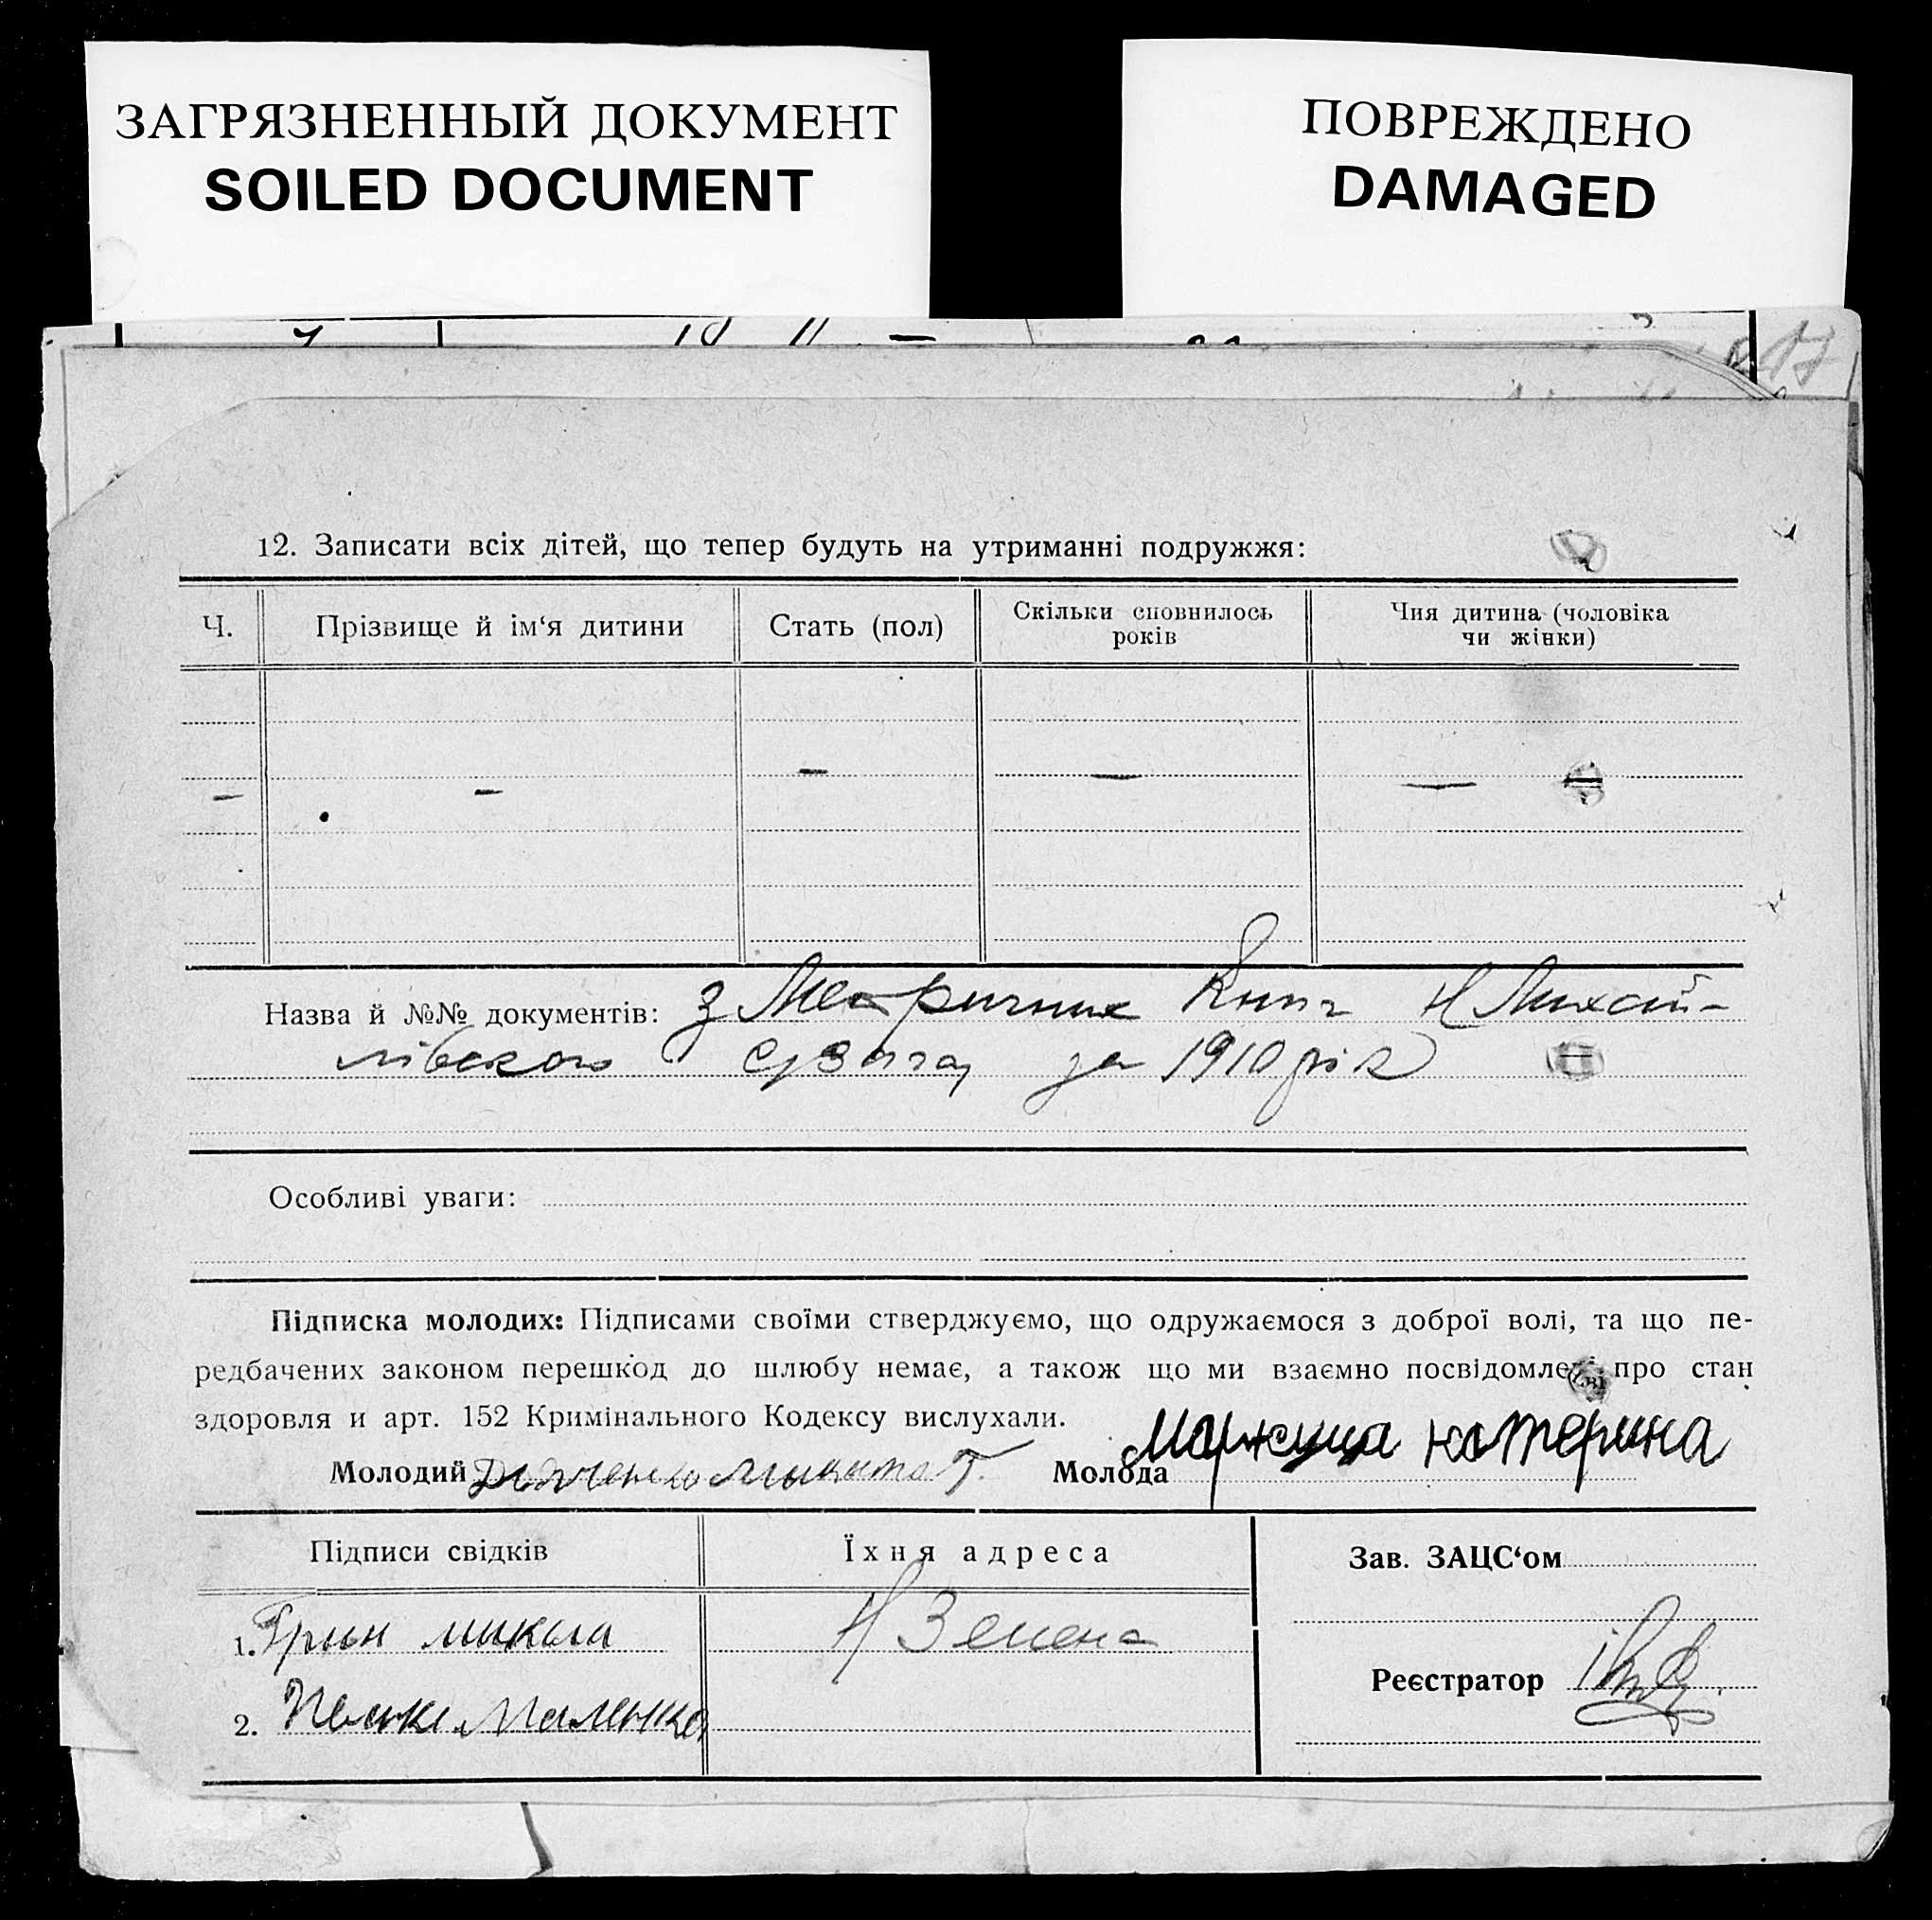 ЗАГРЯЗНЕННЫЙ ДОКУМЕНТ
SOILED DOCUMENT
ПОВРЕЖДЕНО
DAMAGED
12. Записати всіх дітей, що тепер будуть на утриманні подружжя:
Ч.
Прізвище й ім‘я дитини
Стать (пол)
Скільки сповнилось
років
Чия дитина (чоловіка
чи жінки)
— — — — —
Назва й №№ документів: з Метричних Книг Н Михай-
лівського за 1910 рік
Особливі уваги:
Підписка молодих: Підписами своїми стверджуємо, що одружаємося з доброї волі, та що пе-
редбачених законом перешкод до шлюбу немає, а також що ми взаємно посвідомлені про стан
здоровля и арт. 152 Кримінального Кодексу вислухали.
Молодий Микита Г. Молода катерина
Підписи свідків
Їхня адреса
Зав. ЗАЦС‘ом
1. Грин микола
Н Зелена
Реєстратор
2.